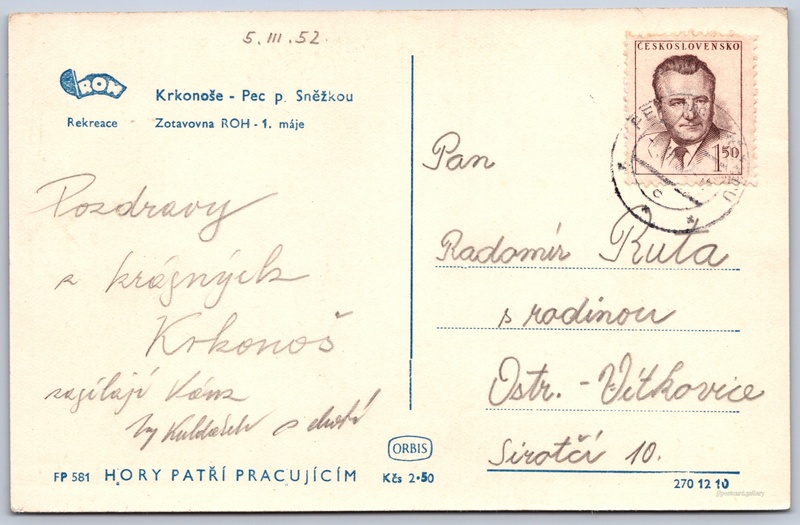 5. III. 52
ROH
Rekreace
Krkonoše - Pec p. Sněžkou
Zotavovna ROH - 1. máje
Pozdravy
z krásných
Krkonoš
zasílají Vám
s chotí
FP 581 HORY PATŘÍ PRACUJÍCÍM
ORBIS
Kčs 2·50
ČESKOSLOVENSKO
1 50
Pan
Radomír Kuta
s rodinou
Ostr. - Vítkovice
Sirotčí 10.
270 12 10